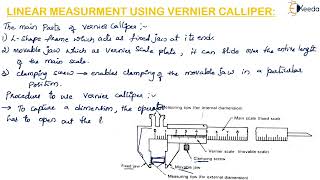 LINEAR MEASURMENT USING VERNIER CALLIPER:
Ekeeda
The main Parts of Vernier Calliper :-
1) L-Shape frame which acts as fixed jaw at its end.
2) movable jaw which as Vernier Scale plate, it can slide over the entire length
of the main scale.
3) clamping screws → enables clamping of the movable jaw in a particular
Position.
Procedure to use Vernier calliper :-
→ To capture a dimension, the operator
has to open out the
Measuring tips (for internal dimension)
Main scale (fixed scale)
Vernier scale (movable scale)
Clamping screw
Fixed jaw
Movable jaw
Measuring tips (for external dimension)